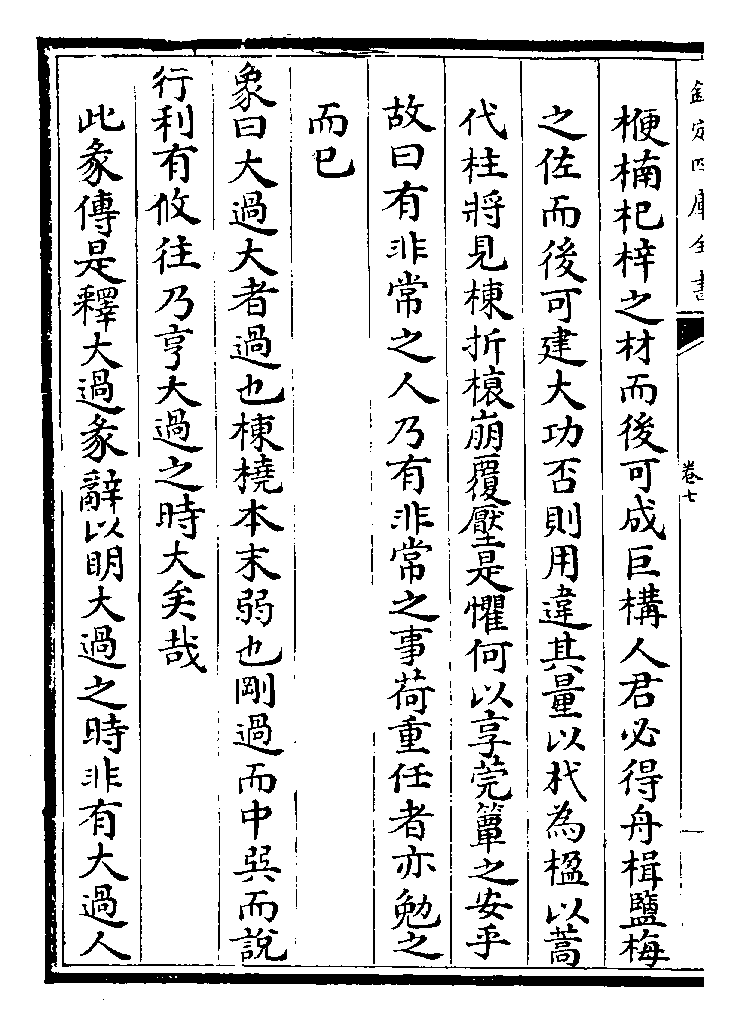 欽定四庫全書
卷七
楩楠杞梓之材而後可成巨構人君必得舟楫鹽梅
之佐而後可建大功否則用違其量以杙為楹以蒿
代柱將見棟折榱崩覆壓是懼何以享莞簟之安乎
故曰有非常之人乃有非常之事荷重任者亦勉之
而已
彖曰大過大者過也棟橈本末弱也剛過而中巽而說
行利有攸往乃亨大過之時大矣哉
此彖傳是釋大過彖辭以明大過之時非有大過人